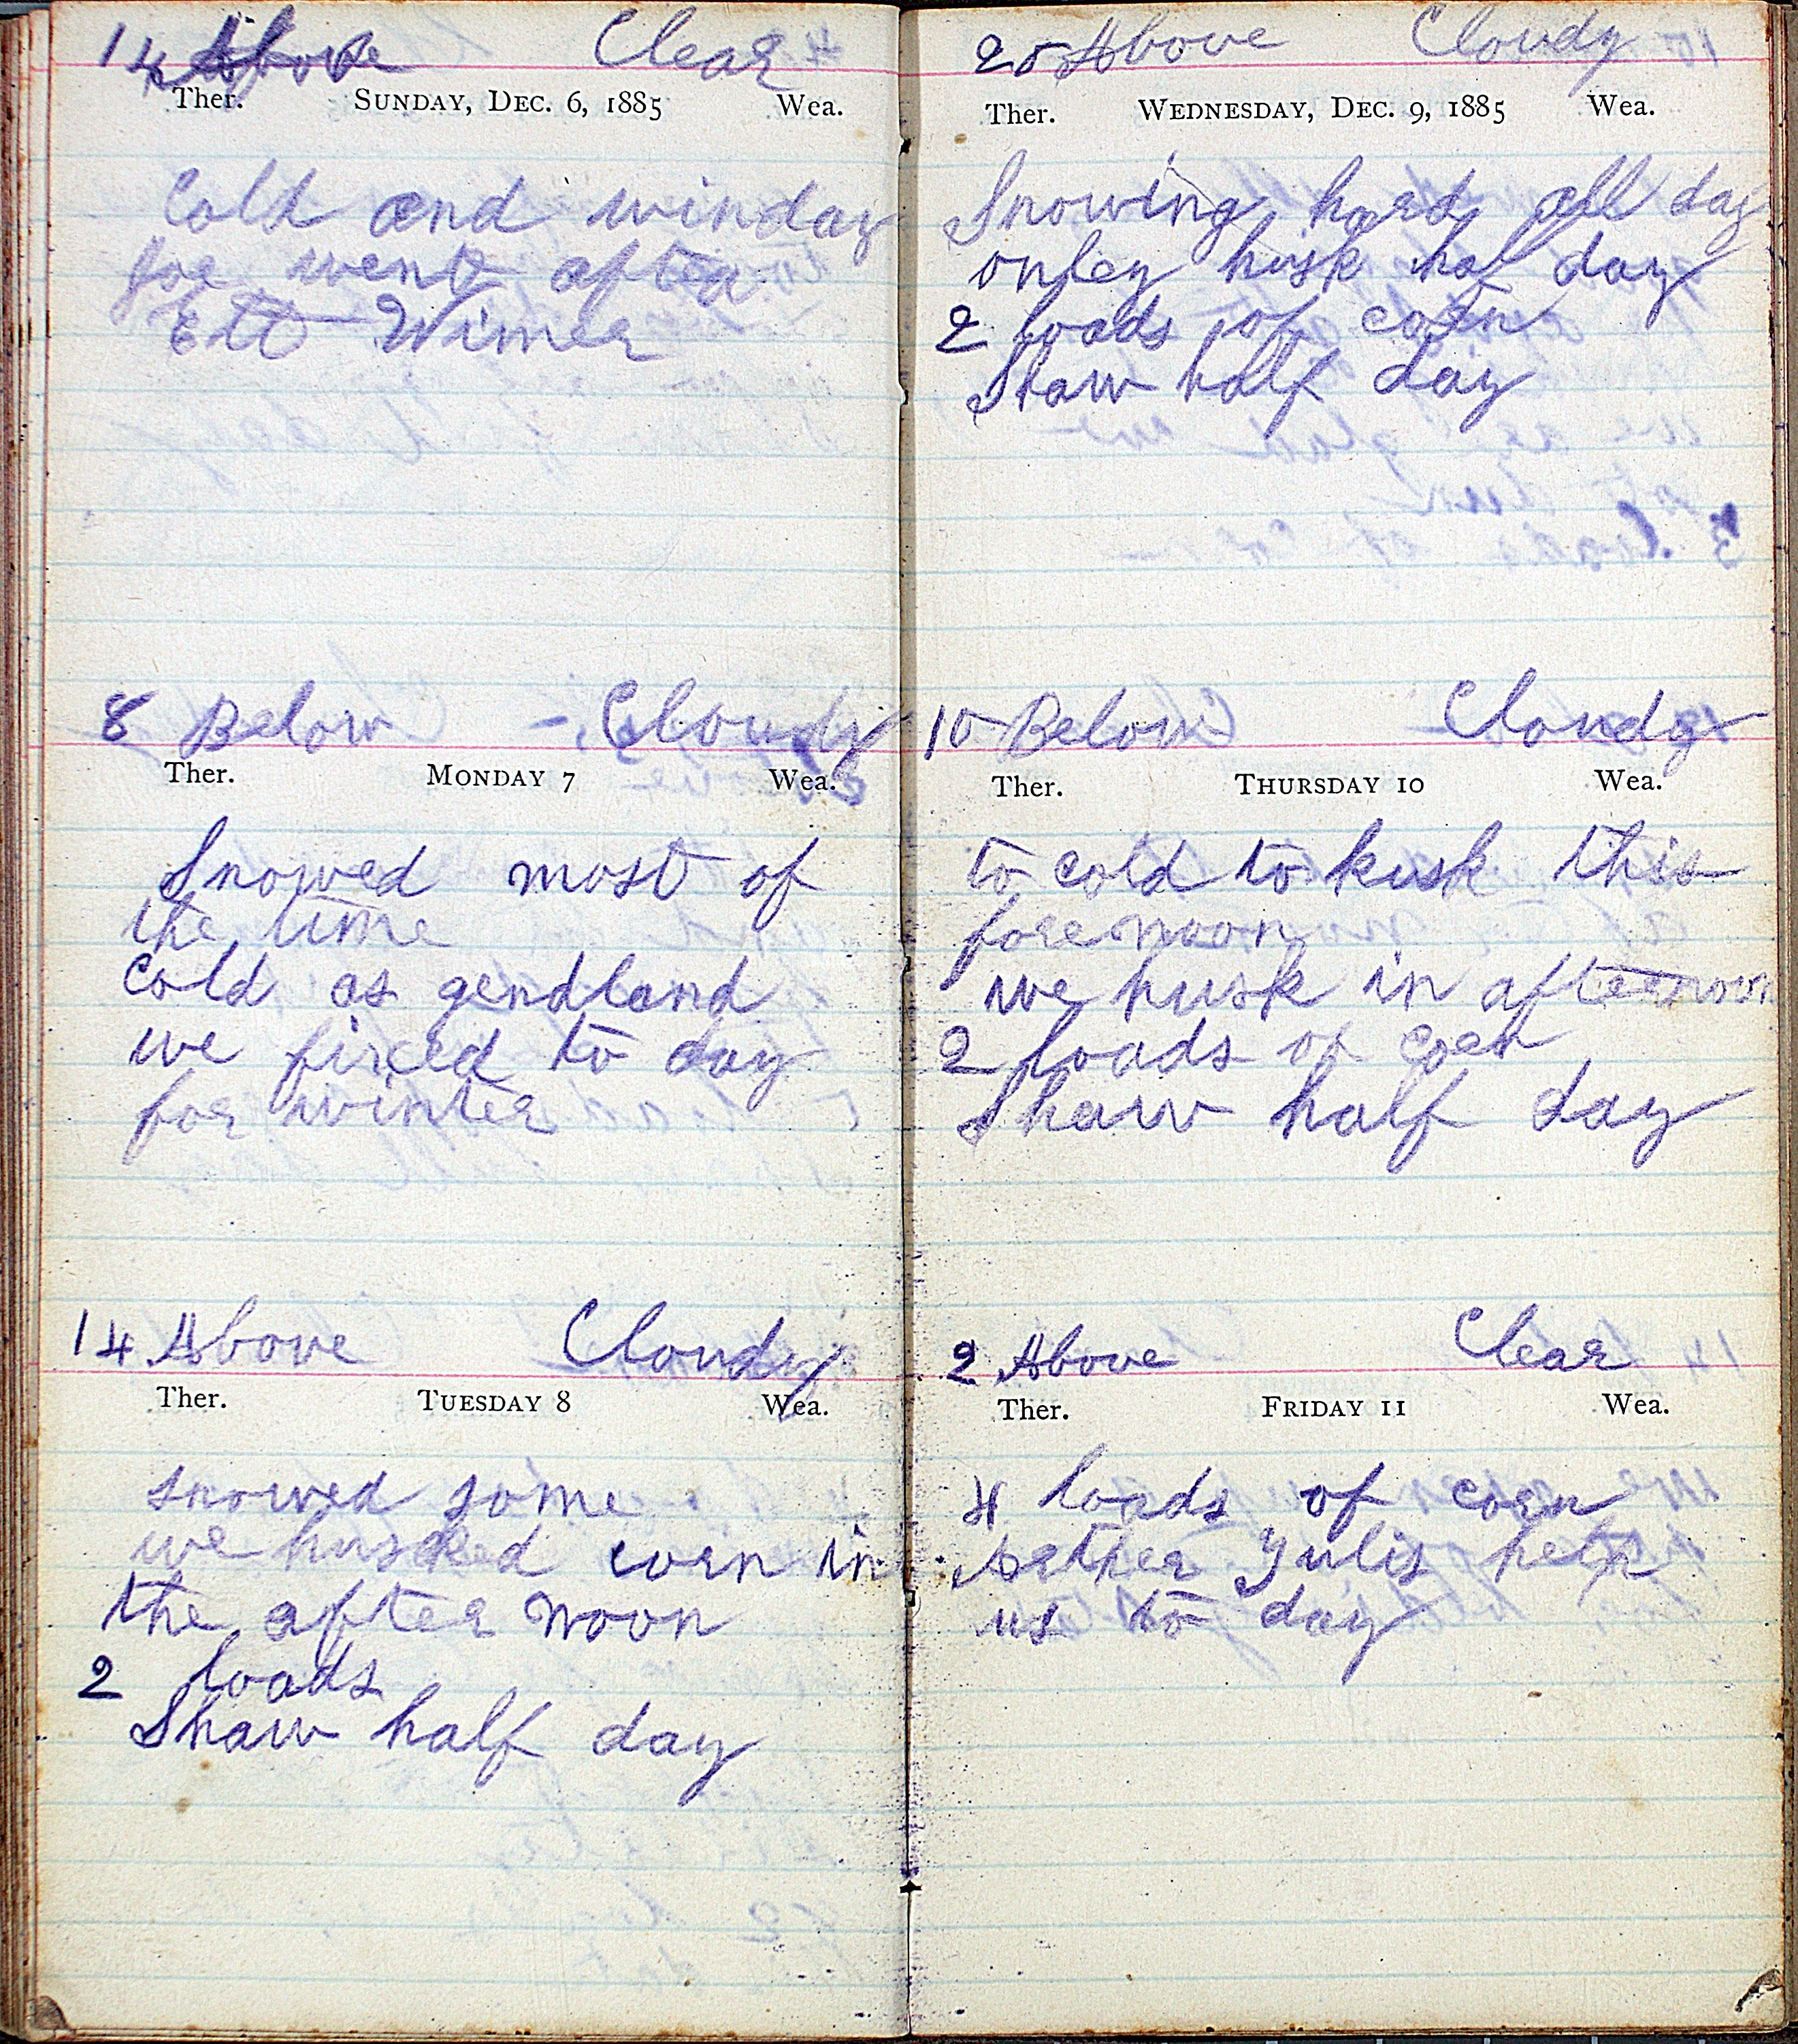 14 Above Clear
Ther. SUNDAY, DEC. 6, 1885 Wea.
Cold and winday
Joe went after
Ett Wimer
8 Below Cloudy
Ther. MONDAY 7 Wea.
Snowed most of
the time
Cold as gendland
we fixed to day
for winter
14 Above Cloudy
Ther. TUESDAY 8 Wea.
snowed some
we husked corn in
the after noon
2 loads
Shaw half day
20 Above Cloudy
Ther. WEDNESDAY, DEC. 9, 1885 Wea.
Snowing hard all day
onley husk hal day
2 loads of corn
Shaw half day
10 Below Cloudy
Ther. THURSDAY 10 Wea.
to cold to husk this
fore noon
we husk in afternoon
2 loads of corn
Shaw half day
2 Above Clear
Ther. FRIDAY 11 Wea.
4 loads of corn
Arther Julis help
us to day